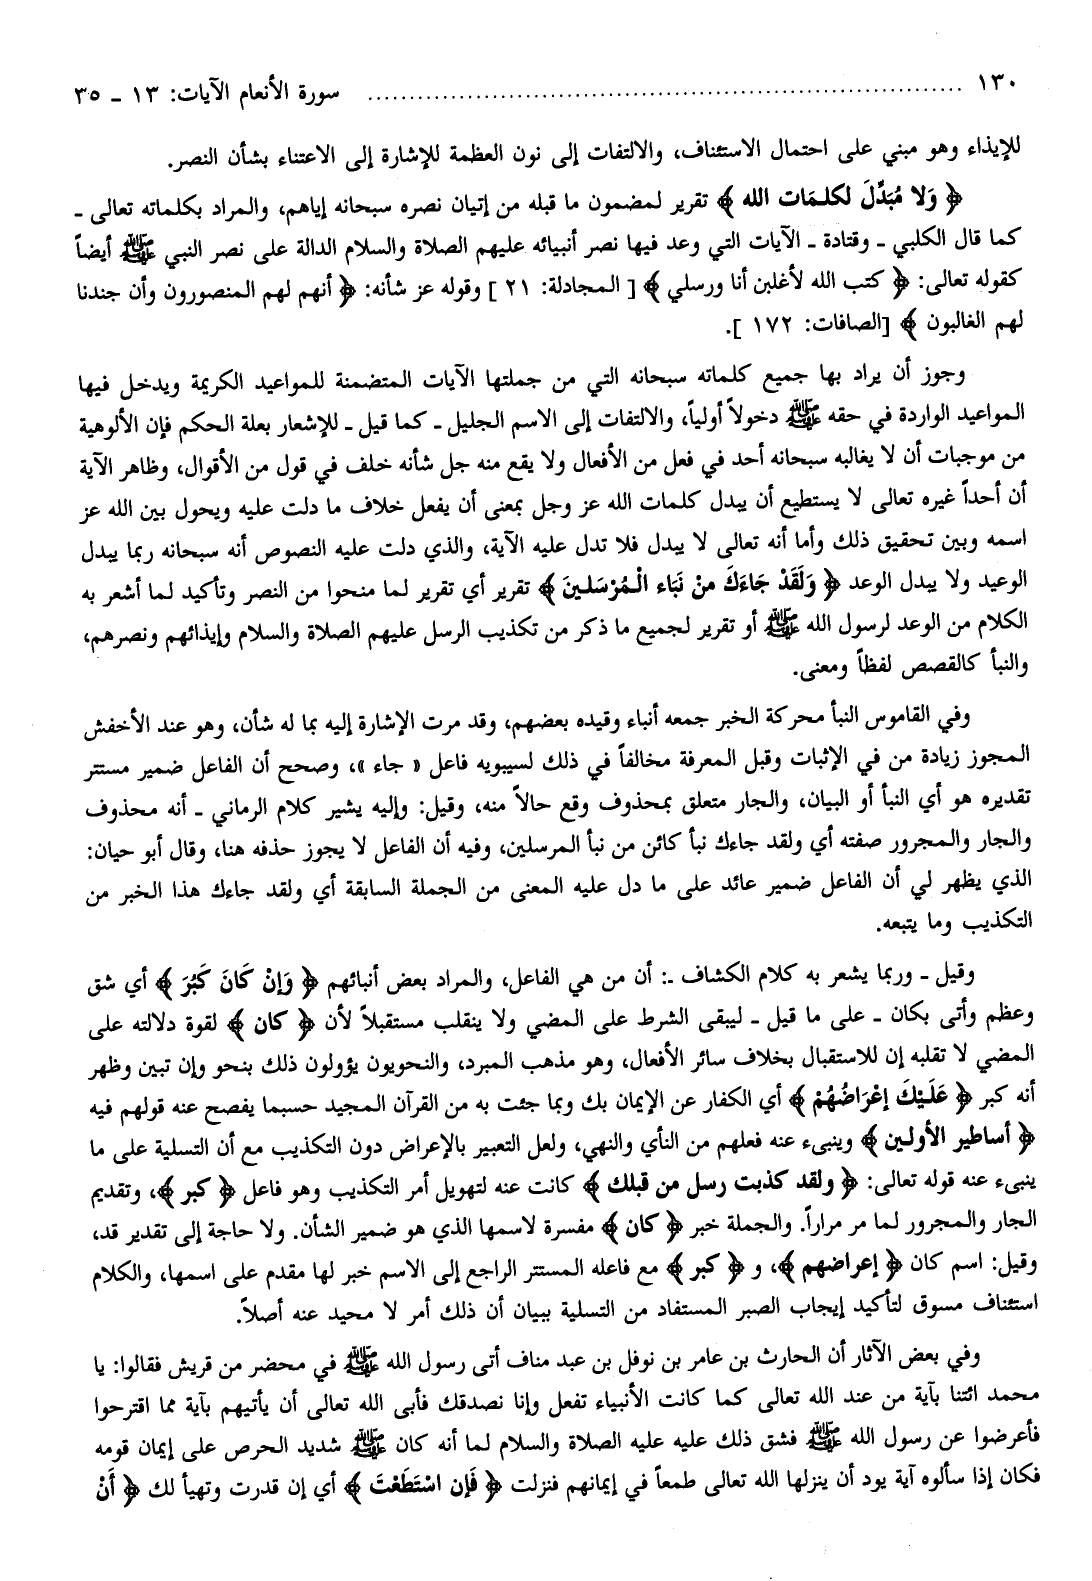 ١٣٠ ........................................ سورة الأنعام الآيات: ١٣ ـ ٣٥
للإيذاء وهو مبني على احتمال الاستئناف، والالتفات إلى نون العظمة للإشارة إلى الاعتناء بشأن النصر.
﴿ وَلا مُبَدِّلَ لكلمَات الله ﴾ تقرير لمضمون ما قبله من إتيان نصره سبحانه إياهم، والمراد بكلماته تعالى ـ
كما قال الكلبي ـ وقتادة ـ الآيات التي وعد فيها نصر أنبيائه عليهم الصلاة والسلام الدالة على نصر النبي ﷺ أيضاً
كقوله تعالى: ﴿ كتب الله لأغلبن أنا ورسلي ﴾ [ المجادلة: ٢١ ] وقوله عز شأنه: ﴿ أنهم لهم المنصورون وأن جندنا
لهم الغالبون ﴾ [الصافات: ١٧٢ ].
وجوز أن يراد بها جميع كلماته سبحانه التي من جملتها الآيات المتضمنة للمواعيد الكريمة ويدخل فيها
المواعيد الواردة في حقه ﷺ دخولاً أولياً، والالتفات إلى الاسم الجليل ـ كما قيل ـ للإشعار بعلة الحكم فإن الألوهية
من موجبات أن لا يغالبه سبحانه أحد في فعل من الأفعال ولا يقع منه جل شأنه خلف في قول من الأقوال، وظاهر الآية
أن أحداً غيره تعالى لا يستطيع أن يبدل كلمات الله عز وجل بمعنى أن يفعل خلاف ما دلت عليه ويحول بين الله عز
اسمه وبين تحقيق ذلك وأما أنه تعالى لا يبدل فلا تدل عليه الآية، والذي دلت عليه النصوص أنه سبحانه ربما يبدل
الوعيد ولا يبدل الوعد ﴿ وَلَقَدْ جَاءَكَ منْ نَبَاء الْمُرْسَلينَ ﴾ تقرير أي تقرير لما منحوا من النصر وتأكيد لما أشعر به
الكلام من الوعد لرسول الله ﷺ أو تقرير لجميع ما ذكر من تكذيب الرسل عليهم الصلاة والسلام وإيذائهم ونصرهم،
والنبأ كالقصص لفظاً ومعنى.
وفي القاموس النبأ محركة الخبر جمعه أنباء وقيده بعضهم، وقد مرت الإشارة إليه بما له شأن، وهو عند الأخفش
المجوز زيادة من في الإثبات وقبل المعرفة مخالفاً في ذلك لسيبويه فاعل « جاء »، وصحح أن الفاعل ضمير مستتر
تقديره هو أي النبأ أو البيان، والجار متعلق بمحذوف وقع حالاً منه، وقيل: وإليه يشير كلام الرماني ـ أنه محذوف
والجار والمجرور صفته أي ولقد جاءك نبأ كائن من نبأ المرسلين، وفيه أن الفاعل لا يجوز حذفه هنا، وقال أبو حيان:
الذي يظهر لي أن الفاعل ضمير عائد على ما دل عليه المعنى من الجملة السابقة أي ولقد جاءك هذا الخبر من
التكذيب وما يتبعه.
وقيل ـ وربما يشعر به كلام الكشاف ـ: أن من هي الفاعل، والمراد بعض أنبائهم ﴿ وَإنْ كَانَ كَبُرَ ﴾ أي شق
وعظم وأتى بكان ـ على ما قيل ـ ليبقى الشرط على المضي ولا ينقلب مستقبلاً لأن ﴿ كان ﴾ لقوة دلالته على
المضي لا تقلبه إن للاستقبال بخلاف سائر الأفعال، وهو مذهب المبرد، والنحويون يؤولون ذلك بنحو وإن تبين وظهر
أنه كبر ﴿ عَلَيْكَ إعْرَاضُهُمْ ﴾ أي الكفار عن الإيمان بك وبما جئت به من القرآن المجيد حسبما يفصح عنه قولهم فيه
﴿ أساطير الأولين ﴾ وينبىء عنه فعلهم من النأي والنهي، ولعل التعبير بالإعراض دون التكذيب مع أن التسلية على ما
ينبىء عنه قوله تعالى: ﴿ ولقد كذبت رسل من قبلك ﴾ كانت عنه لتهويل أمر التكذيب وهو فاعل ﴿ كبر ﴾، وتقديم
الجار والمجرور لما مر مراراً. والجملة خبر ﴿ كان ﴾ مفسرة لاسمها الذي هو ضمير الشأن. ولا حاجة إلى تقدير قد،
وقيل: اسم كان ﴿ إعراضهم ﴾، و ﴿ كبر ﴾ مع فاعله المستتر الراجع إلى الاسم خبر لها مقدم على اسمها، والكلام
استئناف مسوق لتأكيد إيجاب الصبر المستفاد من التسلية ببيان أن ذلك أمر لا محيد عنه أصلاً.
وفي بعض الآثار أن الحارث بن عامر بن نوفل بن عبد مناف أتى رسول الله ﷺ في محضر من قريش فقالوا: يا
محمد ائتنا بآية من عند الله تعالى كما كانت الأنبياء تفعل وإنا نصدقك فأبى الله تعالى أن يأتيهم بآية مما اقترحوا
فأعرضوا عن رسول الله ﷺ فشق ذلك عليه عليه الصلاة والسلام لما أنه كان ﷺ شديد الحرص على إيمان قومه
فكان إذا سألوه آية يود أن ينزلها الله تعالى طمعاً في إيمانهم فنزلت ﴿ فَإن اسْتَطَعْتَ ﴾ أي إن قدرت وتهيأ لك ﴿ أَنْ